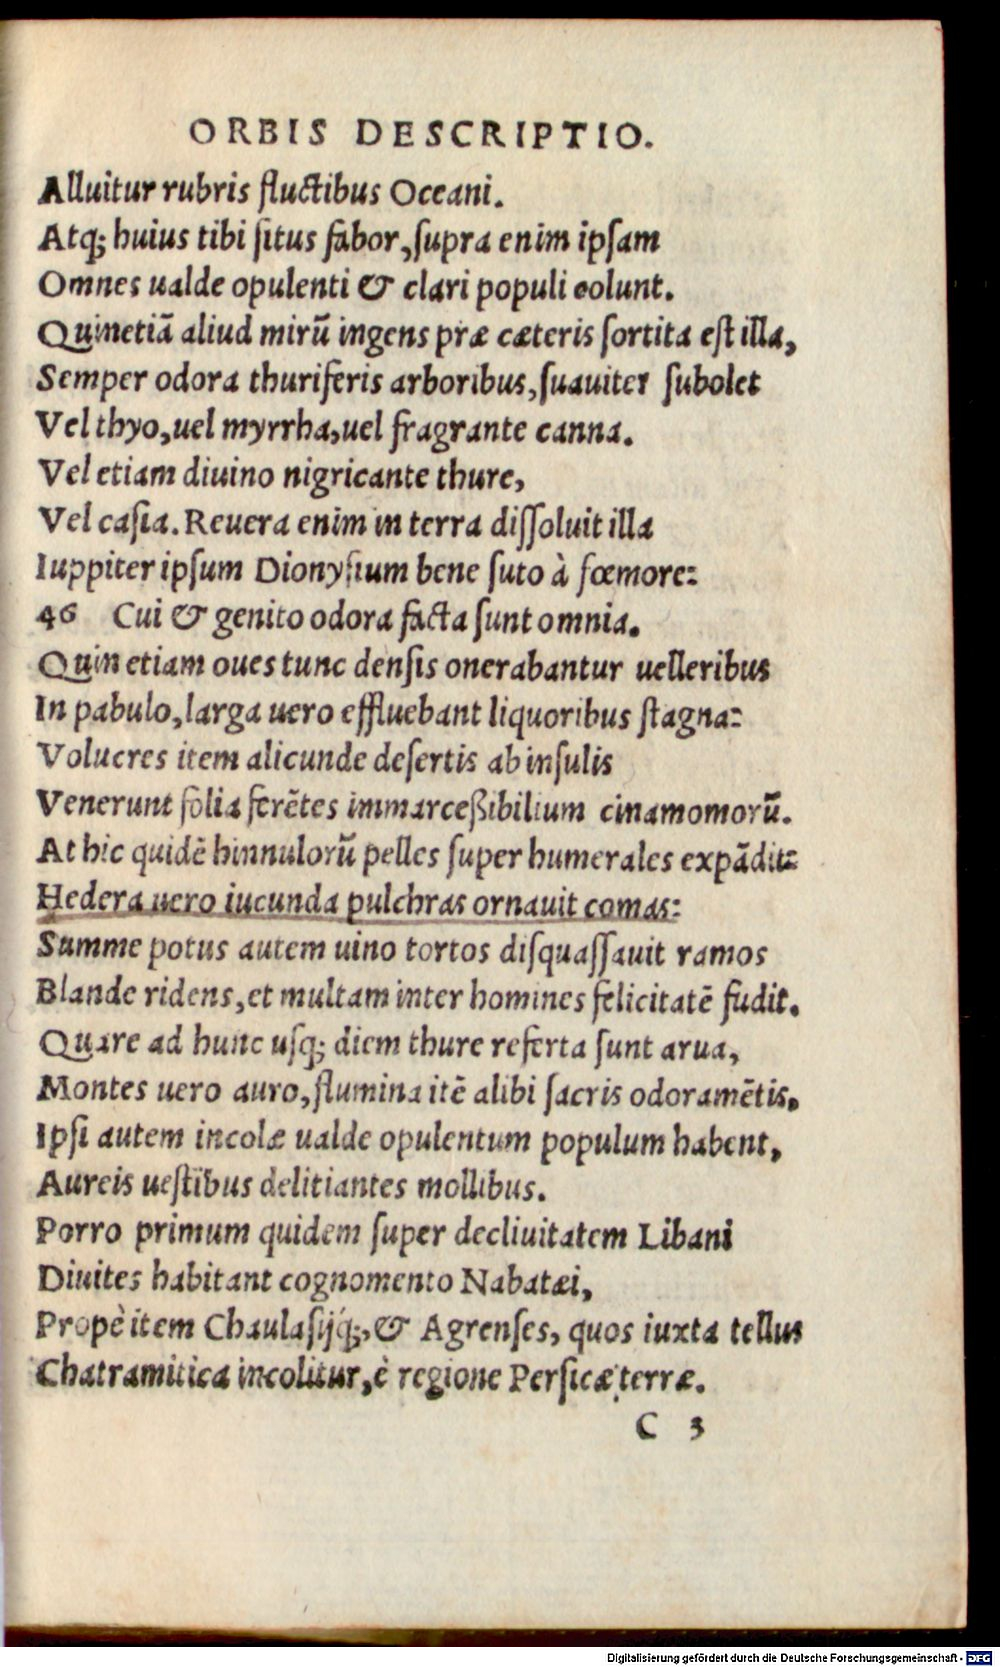 ORBIS DESCRIPTIO.
Alluitur rubris fluctibus Oceani.
Atq; huius tibi ſitus fabor, ſupra enim ipſam
Omnes ualde opulenti & clari populi colunt.
Quinetiã aliud mirũ ingens præ cæteris ſortita eſt illa,
Semper odora thuriferis arboribus, ſuauiter ſubolet
Vel thyo, uel myrrha, uel fragrante canna.
Vel etiam diuino nigricante thure,
Vel caſia. Reuera enim in terra diſſoluit illa
Iuppiter ipſum Dionyſium bene ſuto à fœmore:
46 Cui & genito odora facta ſunt omnia.
Quin etiam oues tunc denſis onerabantur uelleribus
In pabulo, larga uero effluebant liquoribus ſtagna:
Volucres item alicunde deſertis ab inſulis
Venerunt folia ferẽtes immarceßibilium cinamomorũ.
At hic quidẽ hinnulorũ pelles ſuper humerales expãdit:
Hedera uero iucunda pulchras ornauit comas:
Summe potus autem uino tortos diſquaſſauit ramos
Blande ridens, et multam inter homines felicitatẽ fudit.
Quare ad hunc uſq; diem thure referta ſunt arua,
Montes uero auro, flumina itẽ alibi ſacris odoramẽtis.
Ipſi autem incolæ ualde opulentum populum habent,
Aureis ueſtibus delitiantes mollibus.
Porro primum quidem ſuper decliuitatem Libani
Diuites habitant cognomento Nabatæi,
Propè item Chaulaſijq;, & Agrenſes, quos iuxta tellus
Chatramitica incolitur, è regione Perſicæ terræ.
C 3
Digitalisierung gefördert durch die Deutsche Forschungsgemeinschaft - DFG